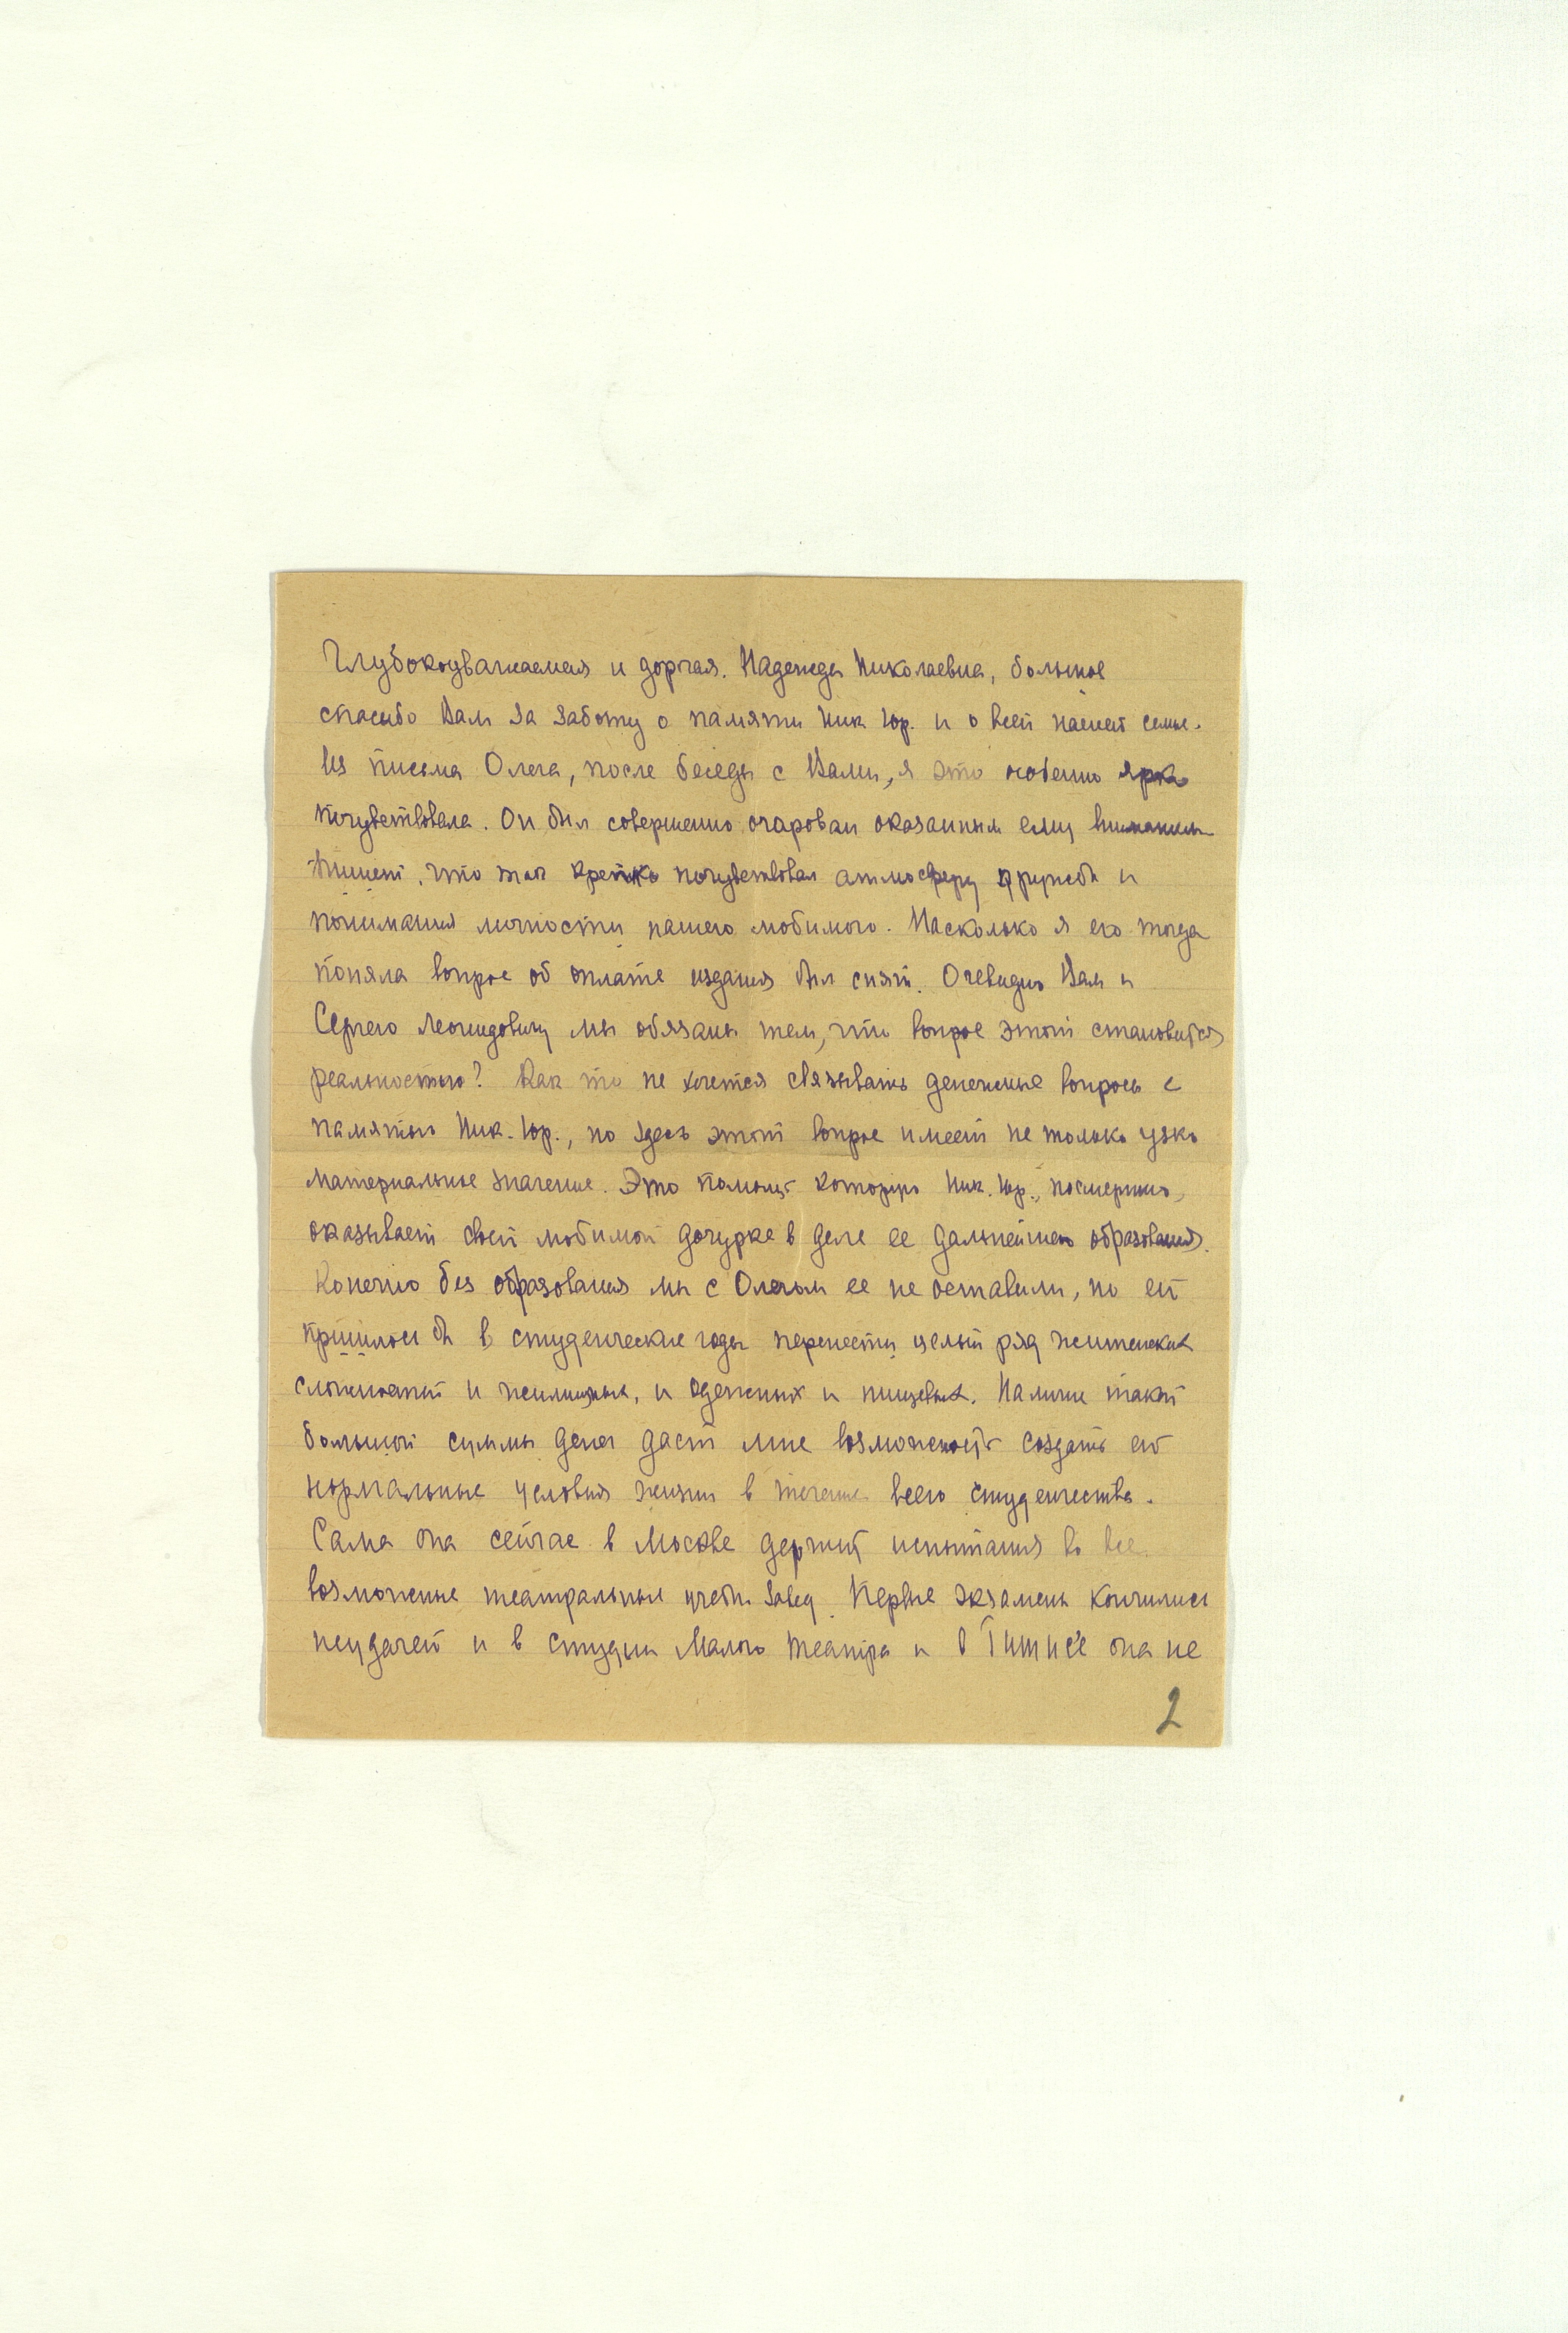 Глубокоуважаемая и дорогая. Надежда Николаевна, большое
спасибо Вам за заботу о памяти Ник Юр. и о всей нашей семье.
Из письма Олега, после беседы с Вами, я это особенно ярко
почувствовала. Он был совершенно очарован оказанным ему вниманием
пишет, что так крепко почувствовал атмосферу дружбы и
понимания личности нашего любимого. Насколько я его тогда
поняла вопрос об оплате издания был снят. Очевидно Вам и
Сергею Леонидовичу мы обязаны тем, что вопрос этот становится
реальностью? Как то не хочется связывать денежные вопросы с
памятью Ник. Юр., но здесь этот вопрос имеет не только узко
материальное значение. Это помощь которую Ник. Юр., посмертно,
оказывает своей любимой дочурке в деле ее дальнейшего образования.
Конечно без образования мы с Олегом ее не оставили, но ей
пришлось бы в студенческие годы перенести целый ряд житейских
сложностей и жилищных, и одежных и пищевых. Наличие такой
большой суммы денег даст мне возможность создать ей
нормальные условия жизни в течение всего студенчества.
Сама она сейчас в Москве держит испытания во все
возможные театральные учебн. завед. Первые экзамены кончились
неудачей и в студии Малого театра и в Гитисе она не
2